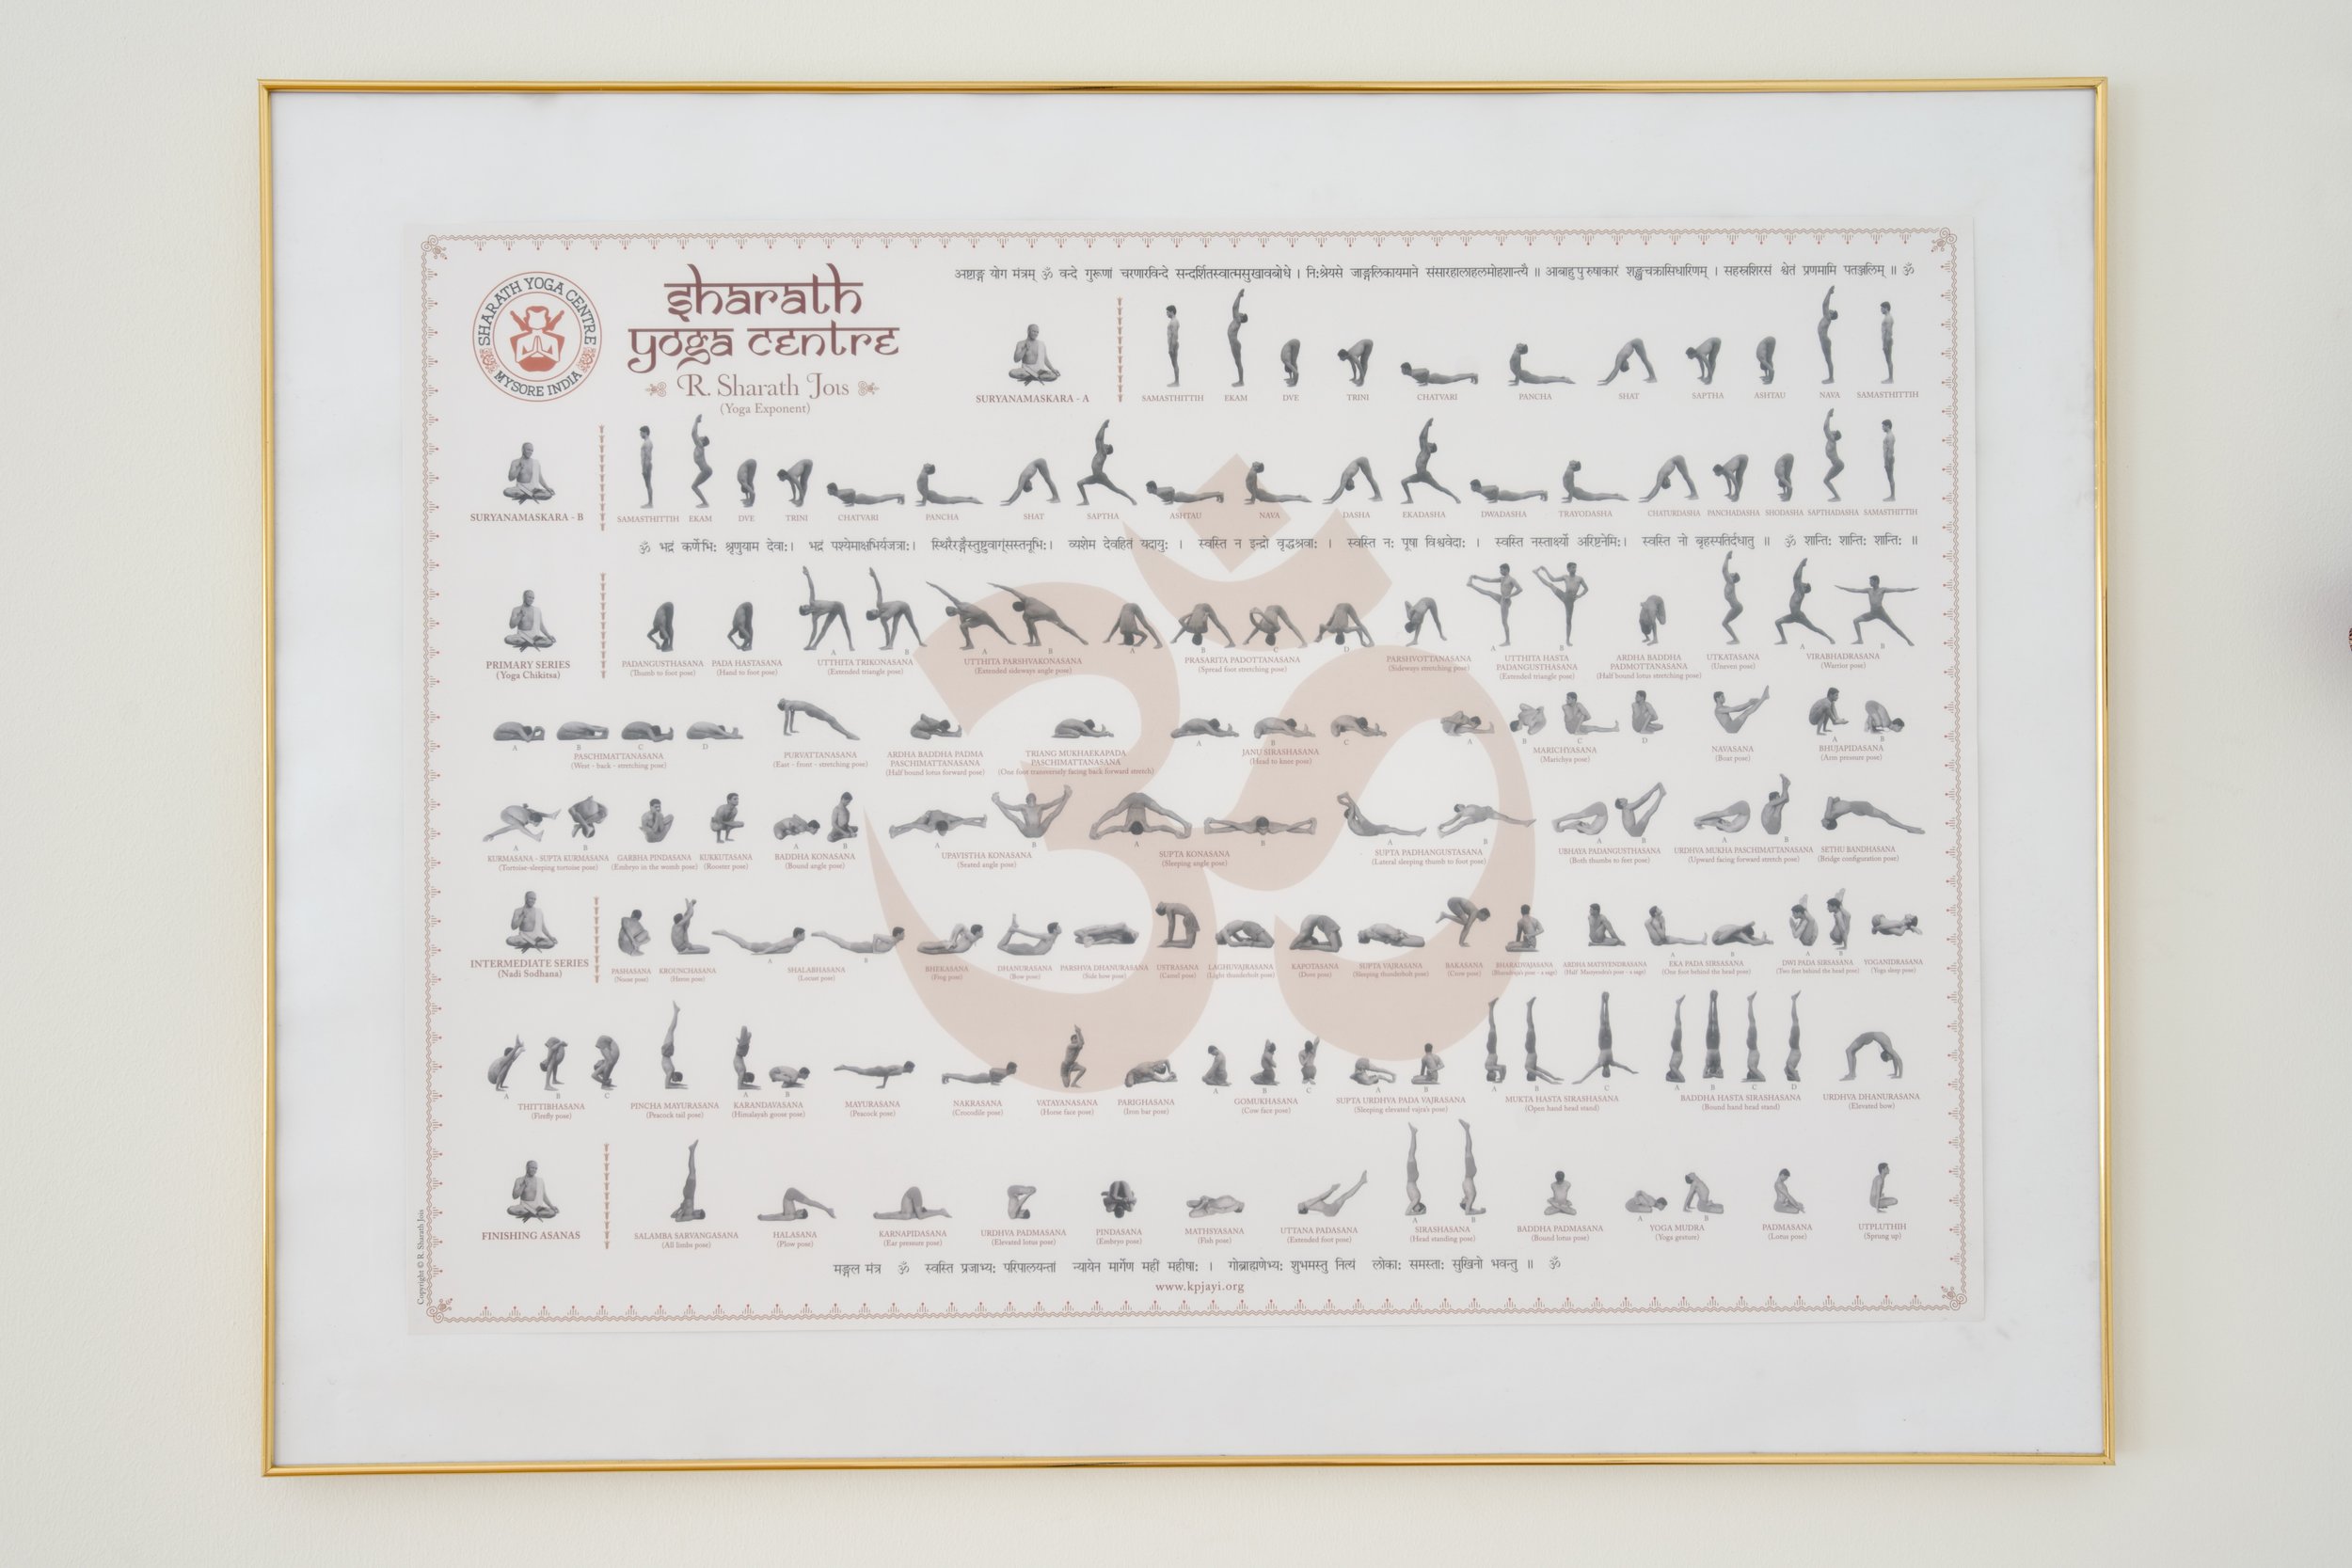 अष्टाङ्ग योग मंत्रम् ॐ वन्दे गुरूणां चरणारविन्दे सन्दर्शितस्वात्मसुखावबोधे । नि:श्रेयसे जाङ्गलिकायमाने संसारहालाहलमोहशान्त्यै ॥ आबाहुपुरुषाकारं शङ्खचक्रासिधारिणम् । सहस्रशिरसं श्वेतं प्रणमामि पतञ्जलिम् ॥ ॐ
SHARATH YOGA CENTRE
MYSORE INDIA
sharath
yoga centre
R. Sharath Jois
(Yoga Exponent)
SURYANAMASKARA - A
SAMASTHITTIH EKAM DVE TRINI CHATVARI PANCHA SHAT SAPTHA ASHTAU NAVA SAMASTHITTIH
SURYANAMASKARA - B
SAMASTHITTIH EKAM DVE TRINI CHATVARI PANCHA SHAT SAPTHA ASHTAU NAVA DASHA EKADASHA DWADASHA TRAYODASHA CHATURDASHA PANCHADASHA SHODASHA SAPTHADASHA SAMASTHITTIH
ॐ भद्रं कर्णेभि: श्रृणुयाम देवा:। भद्रं पश्येमाक्षभिर्यजत्रा:। स्थिरैरङ्गैस्तुष्टुवाग्ंसस्तनूभि:। व्यशेम देवहितं यदायु: । स्वस्ति न इन्द्रो वृद्धश्रवा: । स्वस्ति न: पूषा विश्ववेदा: । स्वस्ति नस्तार्क्ष्यो अरिष्टनेमि:। स्वस्ति नो बृहस्पतिर्दधातु ॥ ॐ शान्ति: शान्ति: शान्ति: ॥
PRIMARY SERIES
(Yoga Chikitsa)
A B A B A B C D A B A B
PADANGUSTHASANA PADA HASTASANA UTTHITA TRIKONASANA UTTHITA PARSHVAKONASANA PRASARITA PADOTTANASANA PARSHVOTTANASANA UTTHITA HASTA PADANGUSTHASANA ARDHA BADDHA PADMOTTANASANA UTKATASANA VIRABHADRASANA
(Thumb to foot pose) (Hand to foot pose) (Extended triangle pose) (Extended sideways angle pose) (Spread foot stretching pose) (Sideways stretching pose) (Extended triangle pose) (Half bound lotus stretching pose) (Uneven pose) (Warrior pose)
A B C D A B C A B C D A B
PASCHIMATTANASANA PURVATTANASANA ARDHA BADDHA PADMA PASCHIMATTANASANA TRIANG MUKHAEKAPADA PASCHIMATTANASANA JANU SIRASHASANA MARICHYASANA NAVASANA BHUJAPIDASANA
(West - back - stretching pose) (East - front - stretching pose) (Half bound lotus forward pose) (One foot transversely facing back forward stretch) (Head to knee pose) (Marichya pose) (Boat pose) (Arm pressure pose)
A B A B A B A B A B A B A B
KURMASANA - SUPTA KURMASANA GARBHA PINDASANA KUKKUTASANA BADDHA KONASANA UPAVISTHA KONASANA SUPTA KONASANA SUPTA PADHANGUSTASANA UBHAYA PADANGUSTHASANA URDHVA MUKHA PASCHIMATTANASANA SETHU BANDHASANA
(Tortoise-sleeping tortoise pose) (Embryo in the womb pose) (Rooster pose) (Bound angle pose) (Seated angle pose) (Sleeping angle pose) (Lateral sleeping thumb to foot pose) (Both thumbs to feet pose) (Upward facing forward stretch pose) (Bridge configuration pose)
INTERMEDIATE SERIES
(Nadi Sodhana)
A B A B A B
PASHASANA KROUNCHASANA SHALABHASANA BHEKASANA DHANURASANA PARSHVA DHANURASANA USTRASANA LAGHUVAJRASANA KAPOTASANA SUPTA VAJRASANA BAKASANA BHARADVAJASANA ARDHA MATSYENDRASANA EKA PADA SIRSASANA DWI PADA SIRSASANA YOGANIDRASANA
(Noose pose) (Heron pose) (Locust pose) (Frog pose) (Bow pose) (Side bow pose) (Camel pose) (Light thunderbolt pose) (Dove pose) (Sleeping thunderbolt pose) (Crow pose) (One foot behind the head pose) (Two feet behind the head pose) (Yoga sleep pose)
A B C A B A B C A B A B C A B C D
THITTIBHASANA PINCHA MAYURASANA KARANDAVASANA MAYURASANA NAKRASANA VATAYANASANA PARIGHASANA GOMUKHASANA SUPTA URDHVA PADA VAJRASANA MUKTA HASTA SIRASHASANA BADDHA HASTA SIRASHASANA URDHVA DHANURASANA
(Firefly pose) (Peacock tail pose) (Himalayah goose pose) (Peacock pose) (Crocodile pose) (Horse face pose) (Iron bar pose) (Cow face pose) (Sleeping elevated vajra's pose) (Open hand head stand) (Bound hand head stand) (Elevated bow)
FINISHING ASANAS
A B A B
SALAMBA SARVANGASANA HALASANA KARNAPIDASANA URDHVA PADMASANA PINDASANA MATHSYASANA UTTANA PADASANA SIRASHASANA BADDHA PADMASANA YOGA MUDRA PADMASANA UTPLUTHIH
(All limbs pose) (Plow pose) (Ear pressure pose) (Elevated lotus pose) (Embryo pose) (Fish pose) (Extended foot pose) (Head standing pose) (Bound lotus pose) (Yoga gesture) (Lotus pose) (Sprung up)
मङ्गल मंत्र ॐ स्वस्ति प्रजाभ्य: परिपालयन्तां न्यायेन मार्गेण महीं महीषा: । गोब्राह्मणेभ्य: शुभमस्तु नित्यं लोका: समस्ता: सुखिनो भवन्तु ॥ ॐ
www.kpjayi.org
Copyright © R. Sharath Jois